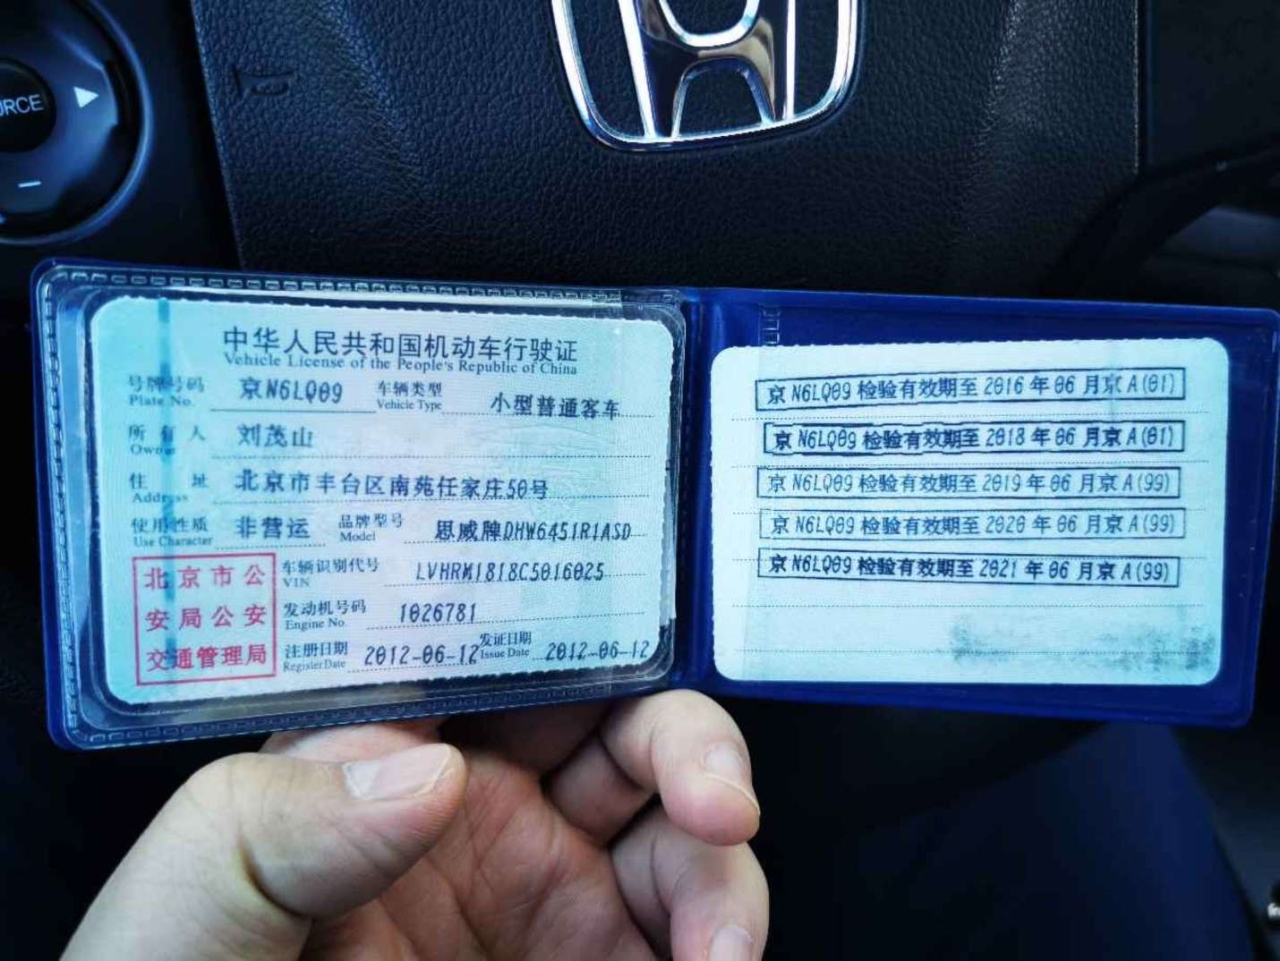 URCE
中华人民共和国机动车行驶证
Vehicle License of the People's Republic of China
号牌号码 京N6LQ09 车辆类型 小型普通客车
Plate No. Vehicle Type
所有人 刘茂山
Owner
住址 北京市丰台区南苑任家庄50号
Address
使用性质 非营运 品牌型号 思威牌DHW6451R1ASD
Use Character Model
北京市公
安局公安
交通管理局
车辆识别代号 LVHRM1818C5016025
VIN
发动机号码 1026781
Engine No.
注册日期 2012-06-12 发证日期 2012-06-12
Register Date Issue Date
京N6LQ09 检验有效期至 2016 年 06 月京 A(01)
京N6LQ09 检验有效期至 2018 年 06 月京 A(01)
京N6LQ09 检验有效期至 2019 年 06 月京 A(99)
京N6LQ09 检验有效期至 2020 年 06 月京 A(99)
京N6LQ09 检验有效期至 2021 年 06 月京 A(99)